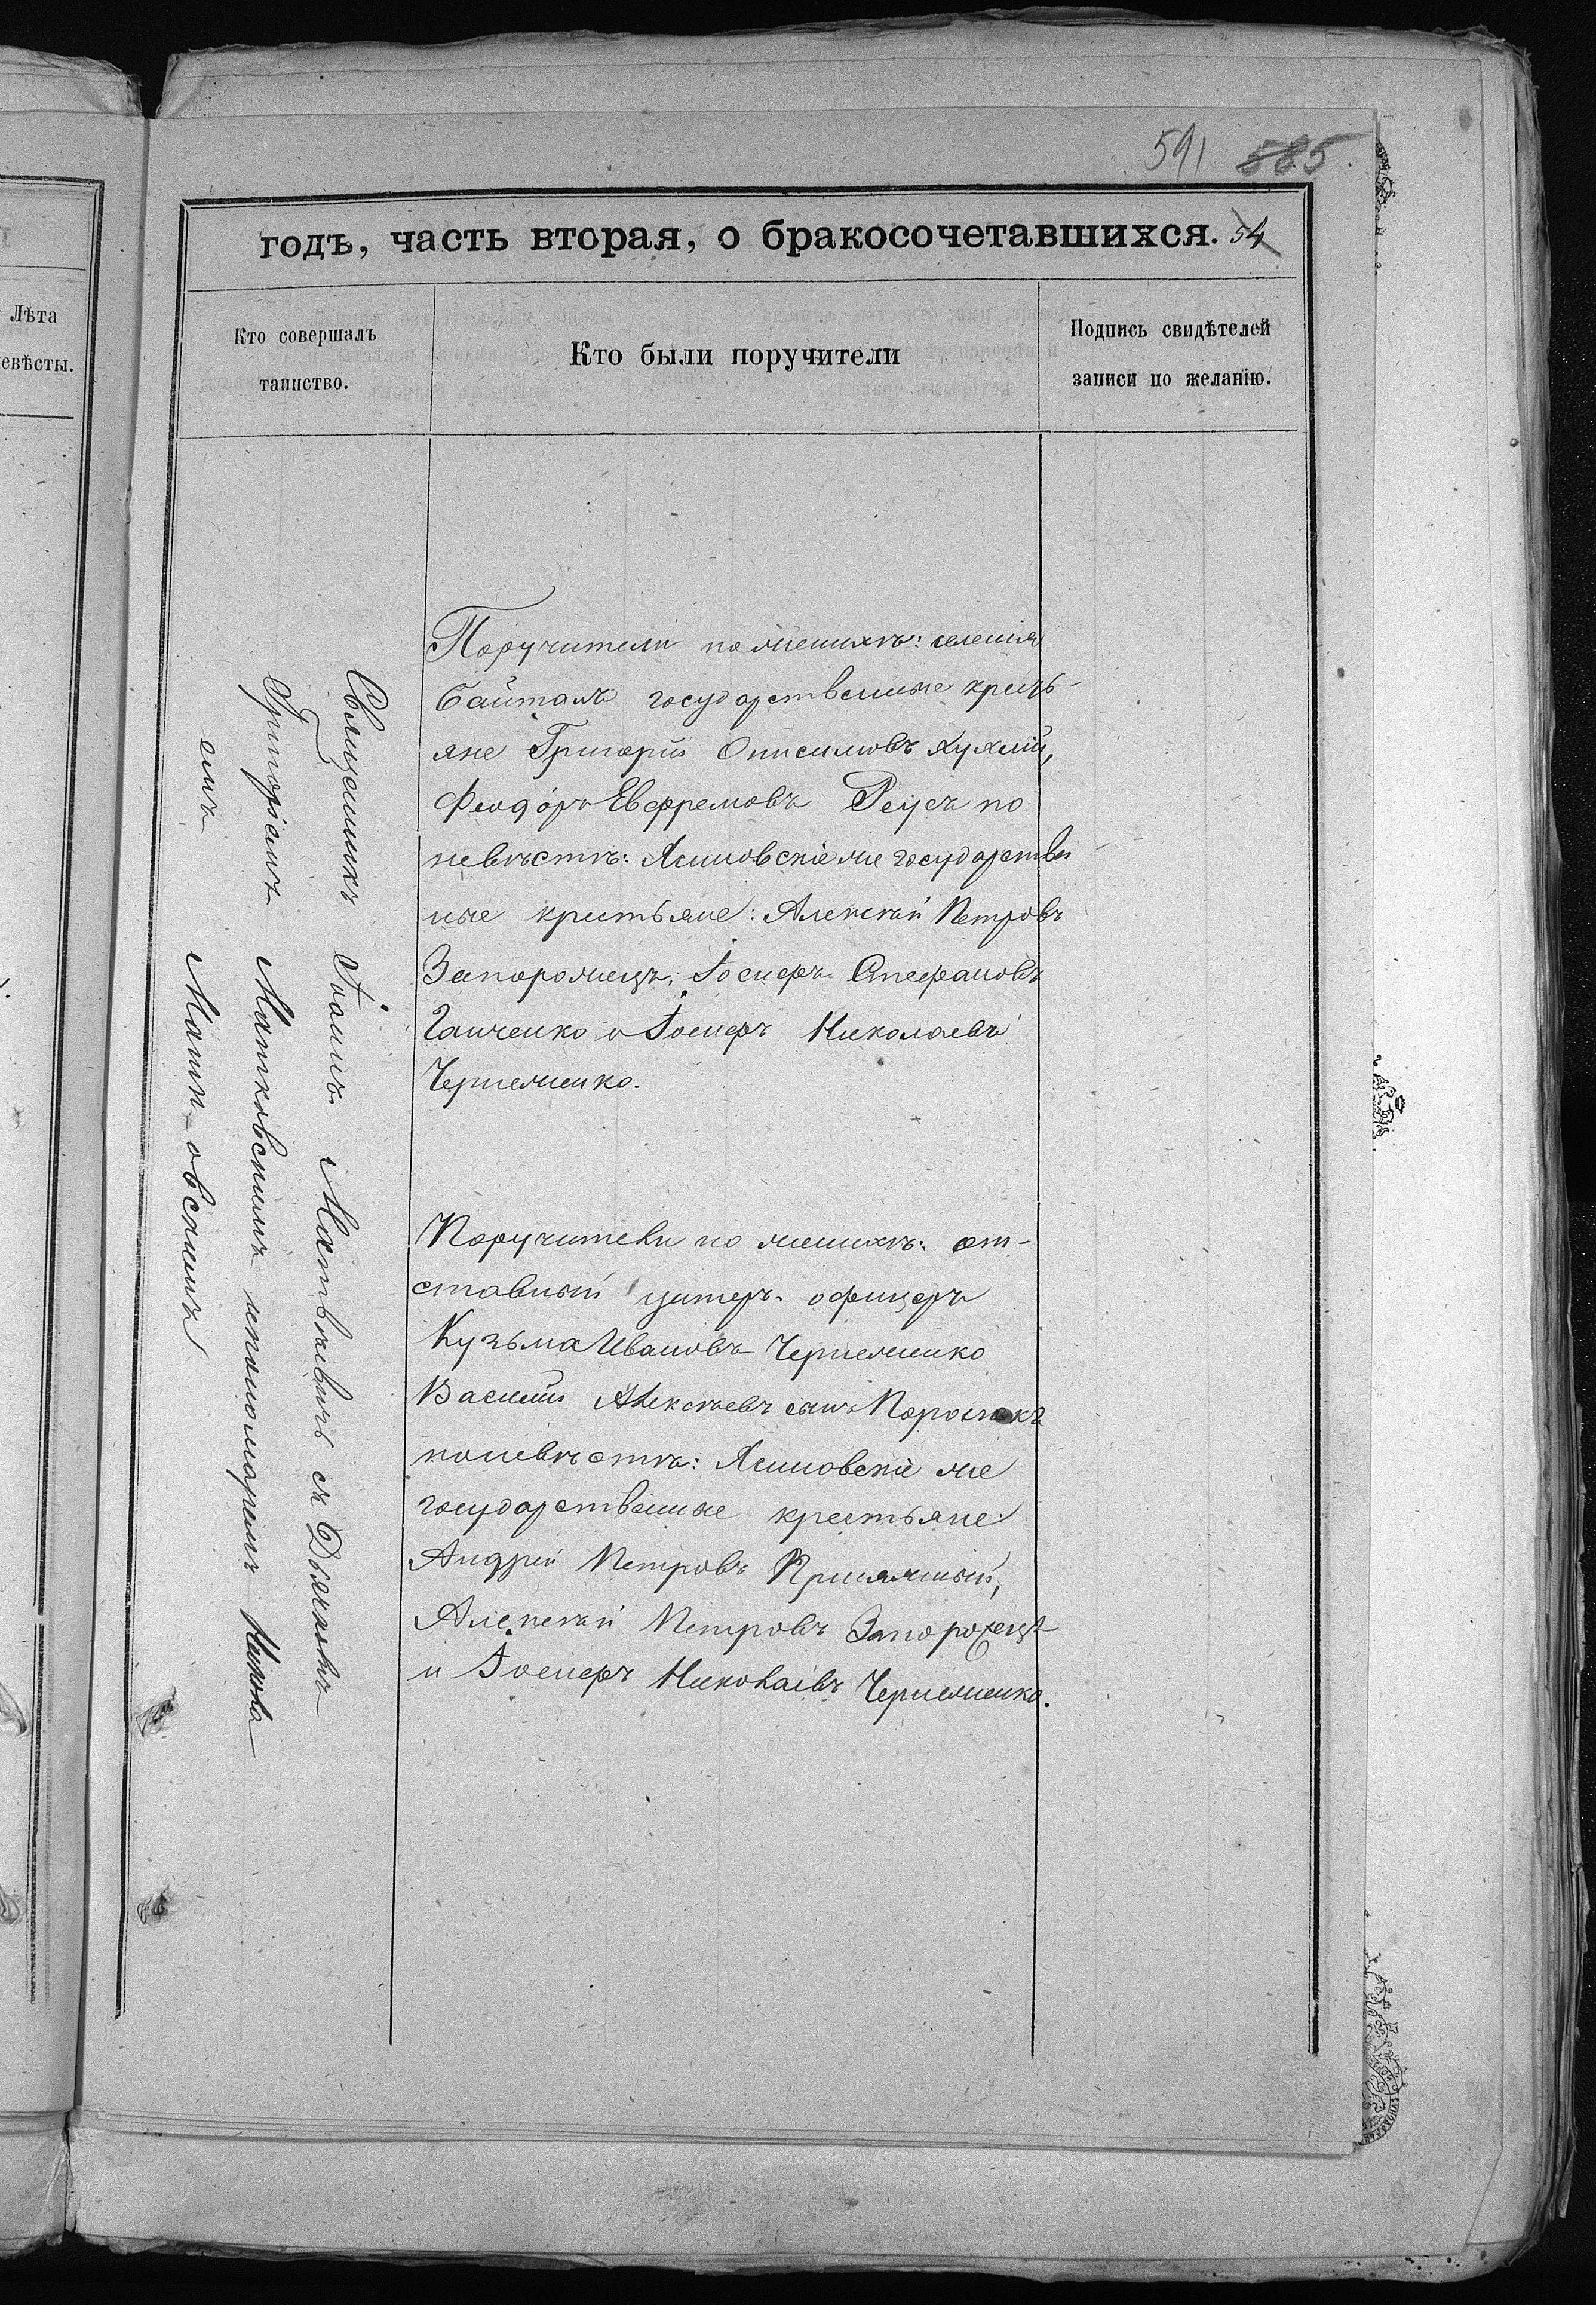 591 885.
годъ, часть вторая, о бракосочетавшихся. 54
Лѣта
евѣсты.
Кто совершалъ
таинство.
Кто были поручители
Подпись свидѣтелей
записи по желанію.
Священникъ Іоаннъ Матвѣевичъ съ Дьячкомъ
Григоріемъ Матковскимъ и пономаремъ
Поручители по женихѣ: селенія
Байталъ государственные кресть-
яне Григорій Онисимовъ Кухлій,
Феодоръ Евфремовъ Реусъ по
невѣстѣ: Ясиновскіе же государствен
ные крестьяне: Алексѣй Петровъ
Запорожецъ, Іосифъ Стефановъ
Ганченко и Іосифъ Николаевъ
Чернеменко.
Поручители по женихѣ: от-
ставный унтеръ-офицеръ
Кузьма Ивановъ Чернеменко
Василій Алексѣевъ сынъ
по невѣстѣ: Ясиновскіе же
государственные крестьяне:
Андрей Петровъ
Алексѣй Петровъ Запорожецъ
и Іосифъ Николаевъ Чернеменко.